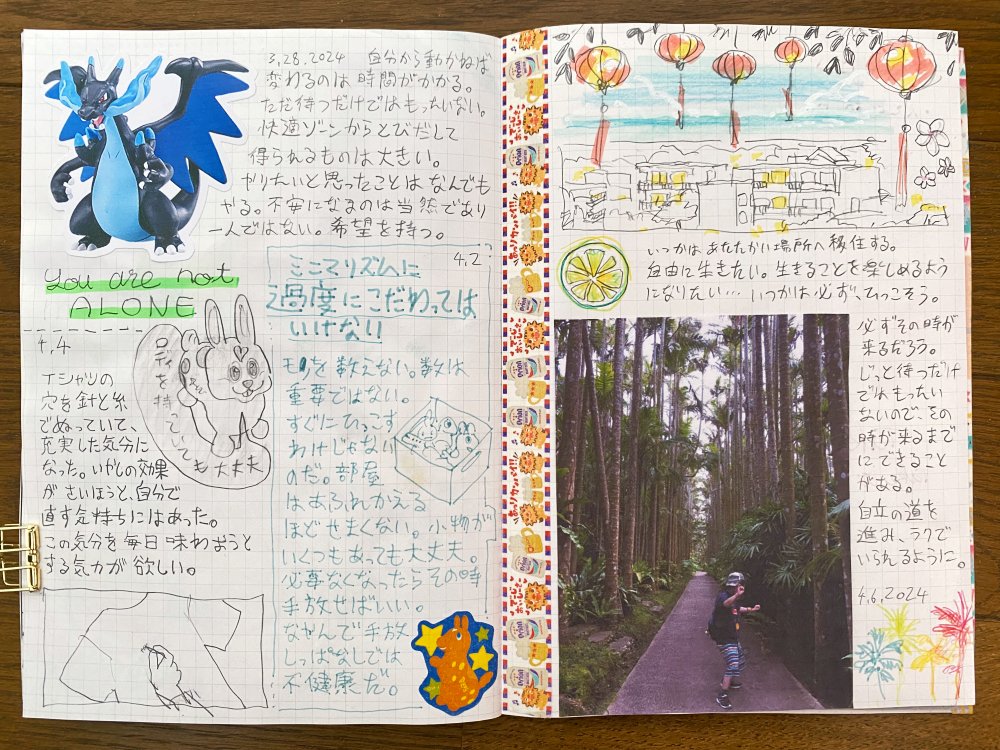 3,28,2024 自分から動かねば
変わるのは時間がかかる。
ただ待つだけではもったいない。
快適ゾーンからとびだして
得られるものは大きい。
やりたいと思ったことはなんでも
やる。不安になるのは当然であり
一人ではない。希望を持つ。
you are not
ALONE
4,2
ミニマリズムに
過度にこだわっては
いけない
モノを数えない。数は
重要ではない。
すぐにひっこす
わけじゃない
のだ。部屋
はあふれかえる
ほどせまくない。小物が
いくつもあっても大丈夫。
必要なくなったらその時
手放せばいい。
なやんで手放
しっぱなしでは
不健康だ。
4,4
Tシャツの
穴を針と糸
でぬっていて、
充実した気分に
なった。いやしの効果
がさいほうと、自分で
直す気持ちにはあった。
この気分を毎日味わおうと
する気力が欲しい。
ロディを持っていても大丈夫
いつかはあたたかい場所へ移住する。
自由に生きたい。生きることを楽しめるよう
になりたい… いつかは必ず、ひっこそう。
必ずその時が
来るだろう。
じっと待つだけ
でわもったい
ないので、その
時が来るまで
にできること
がある。
自立の道を
進み、ラクで
いられるように。
4.6.2024
Orion